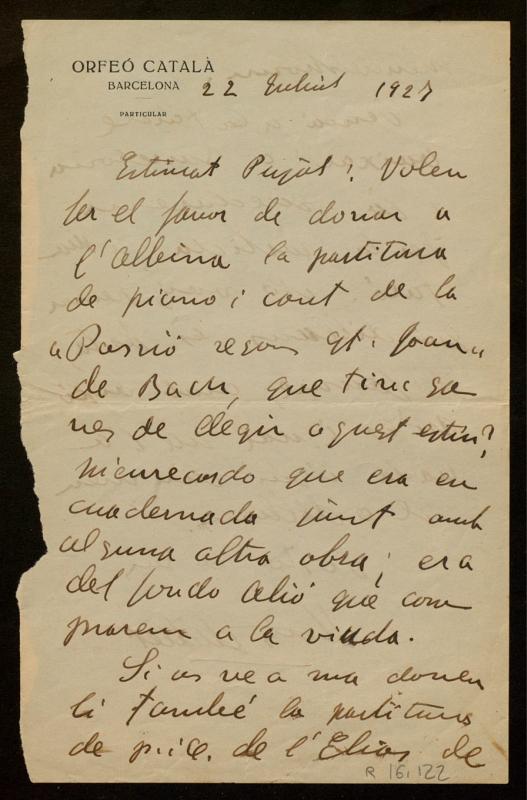 ORFEÓ CATALÀ
BARCELONA
PARTICULAR
22 Juliol 1927
Estimat Pujol: Volen
fer el favor de donar a
l'Albina la partitura
de piano i cant de la
"Passió segons St. Joan"
de Bach, que tinc ga
nes de llegir aquest estiu?
Me'n recordo que era en
cuadernada junt amb
alguna altra obra; era
del fondo Alió que com
prarem a la viuda.
Si us ve a ma doneu
li també la partitura
de p. i c. de l'Elias de
R 16.122